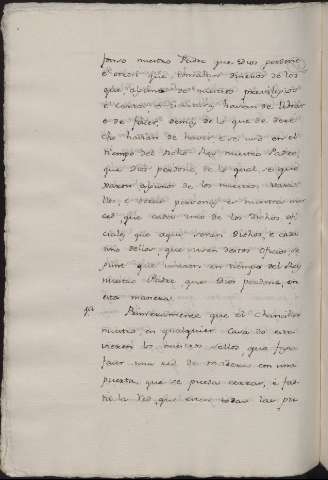 nuestro Padre que Dios perdone
que tomaban dineros de los
que de nuestros privilegios
e cartas e havian de librar
e de facer, demas de lo que de dere
cho havian de haver e se usó en el
tiempo del dicho Rey nuestro Padre,
que Dios perdone, de lo qual se que
xaron algunos de los nuestros vasa
llos, e desto es nuestra mer
ced que cada uno de los dichos ofi
ciales que aqui seran dichos, e cada
uno dellos, que usen destos oficios se
gunt que usaron en tiempo del Rey
nuestro Padre que Dios perdone, en
esta manera
Primeramente que el Chanciller
nuestro, en qualquier Casa do estu
vieren los nuestros sellos, que faga
facer una red de madera con una
puerta, que se pueda cerrar, e fas
ta la red que entren todas las per